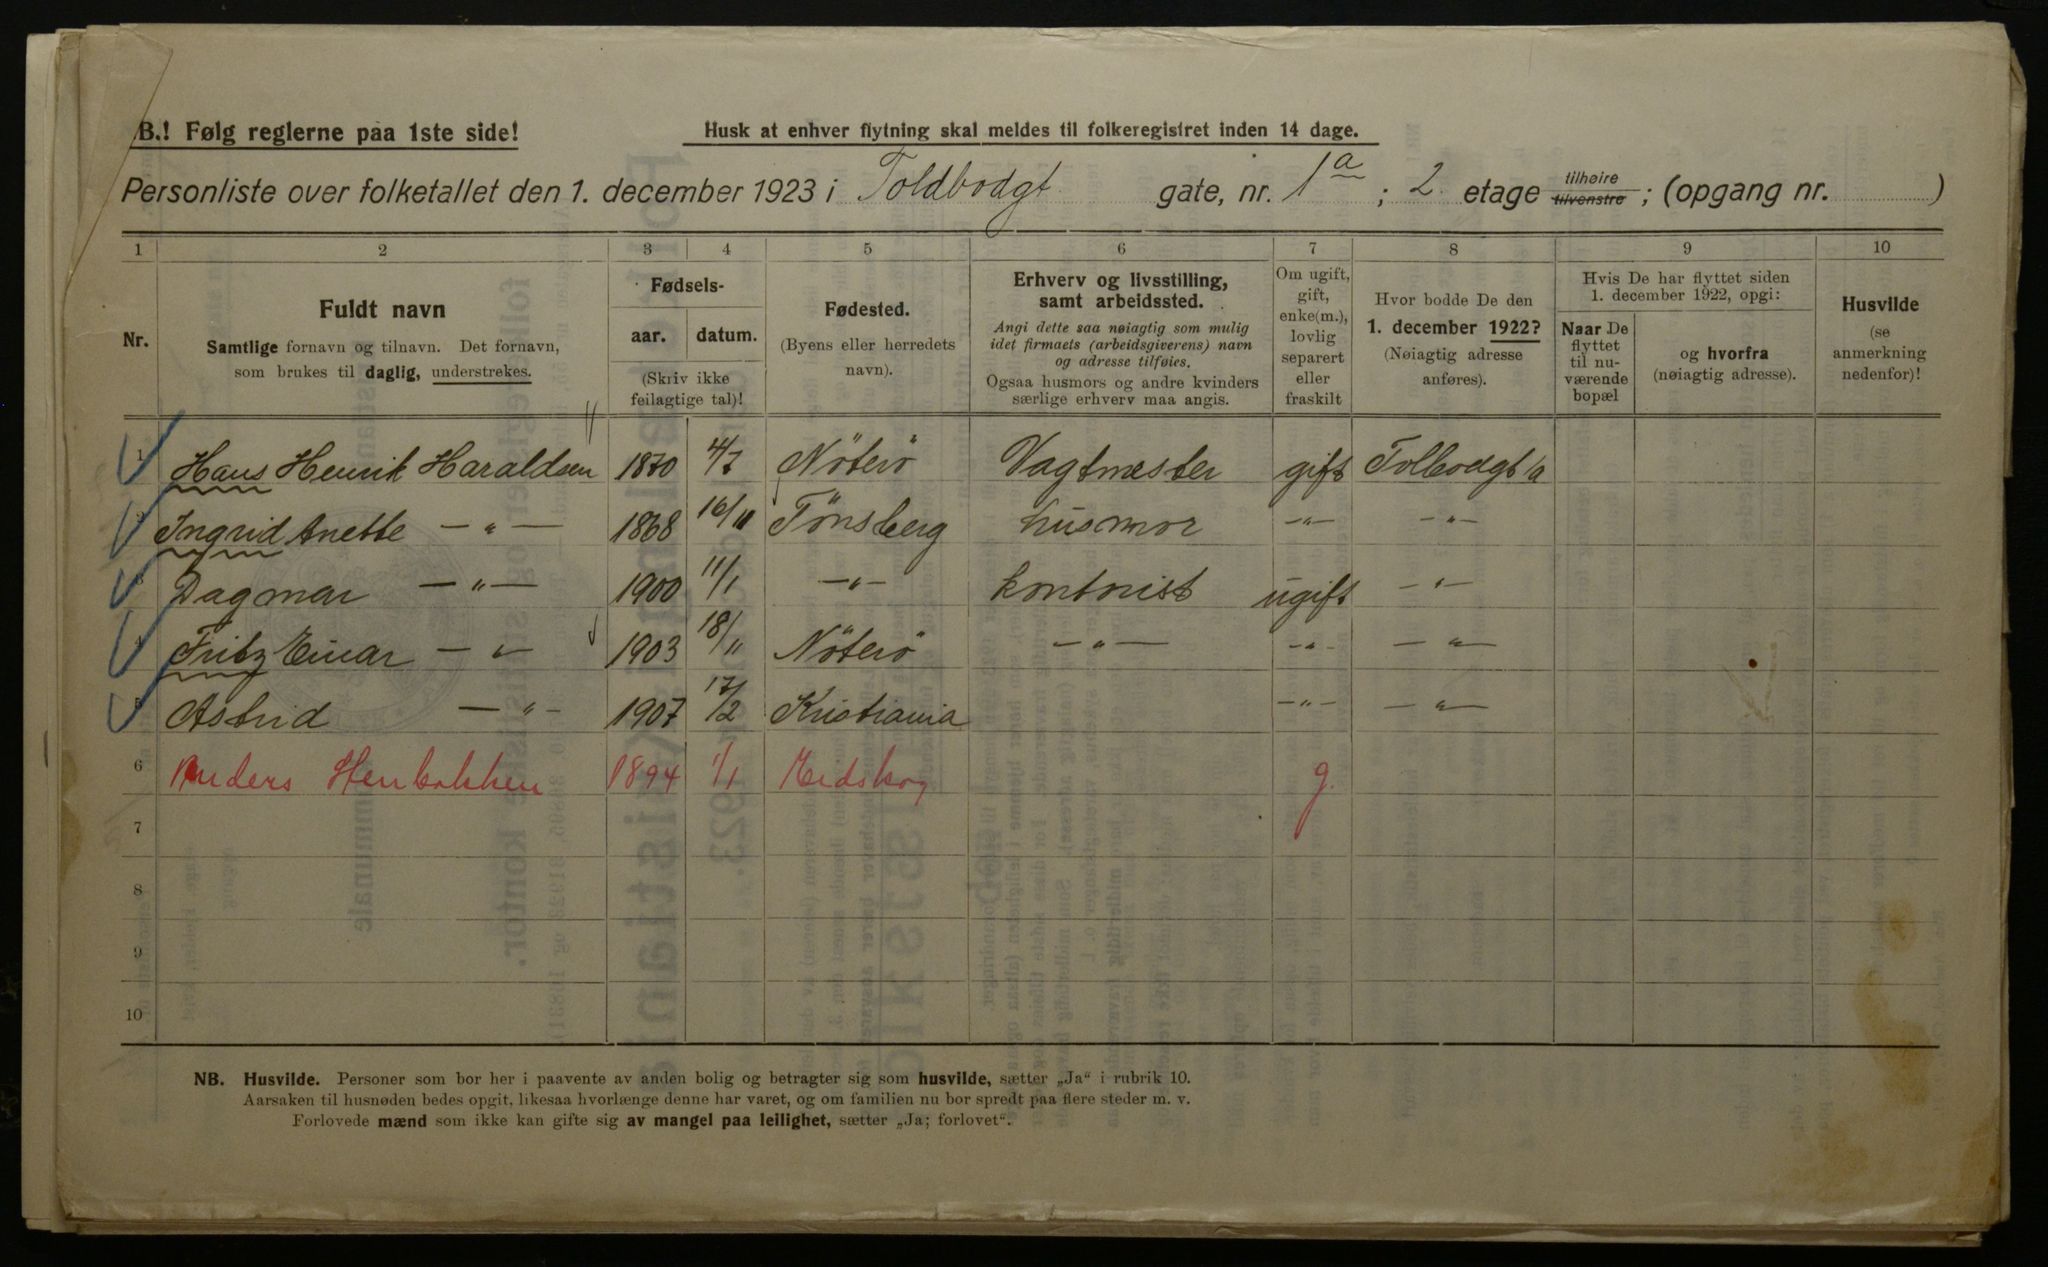 B.! Følg reglerne paa 1ste side!
Husk at enhver flytning skal meldes til folkeregistret inden 14 dage.
Personliste over folketallet den 1. december 1923 i Toldbodgt gate, nr. 1a ; 2 etage tilhøire tilvenstre ; (opgang nr. )
1 2 3 4 5 6 7 8 9 10
Nr.
Fuldt navn
Samtlige fornavn og tilnavn. Det fornavn,
som brukes til daglig, understrekes.
Fødsels-
aar. datum.
(Skriv ikke
feilagtige tal)!
Fødested.
(Byens eller herredets
navn).
Erhverv og livsstilling,
samt arbeidssted.
Angi dette saa nøiagtig som mulig
idet firmaets (arbeidsgiverens) navn
og adresse tilføies.
Ogsaa husmors og andre kvinders
særlige erhverv maa angis.
Om ugift,
gift,
enke(m.),
lovlig
separert
eller
fraskilt
Hvor bodde De den
1. december 1922?
(Nøiagtig adresse
anføres).
Hvis De har flyttet siden
1. december 1922, opgi:
Naar De
flyttet
til nu-
værende
bopæl
og hvorfra
(nøiagtig adresse).
Husvilde
(se
anmerkning
nedenfor)!
1 Hans Henrik Haraldsen 1870 4/7 Nöterö Vagtmester gift Tolbodgt 1a
2 Ingrid Anette — " — 1868 16/11 Tönsberg husmor -"- -"-
3 Dagmar — " — 1900 11/1 -"- kontorist ugift -"-
4 Fritz Einar — " — 1903 18/11 Nöterö — " — -"- — " —
5 Astrid — " — 1907 17/2 Kristiania -"- — " —
6 Anders 1894 1/1 Eidskog g.
7
8
9
10
NB. Husvilde. Personer som bor her i paavente av anden bolig og betragter sig som husvilde, sætter „Ja“ i rubrik 10.
Aarsaken til husnøden bedes opgit, likesaa hvorlænge denne har varet, og om familien nu bor spredt paa flere steder m. v.
Forlovede mænd som ikke kan gifte sig av mangel paa leilighet, sætter „Ja; forlovet“.